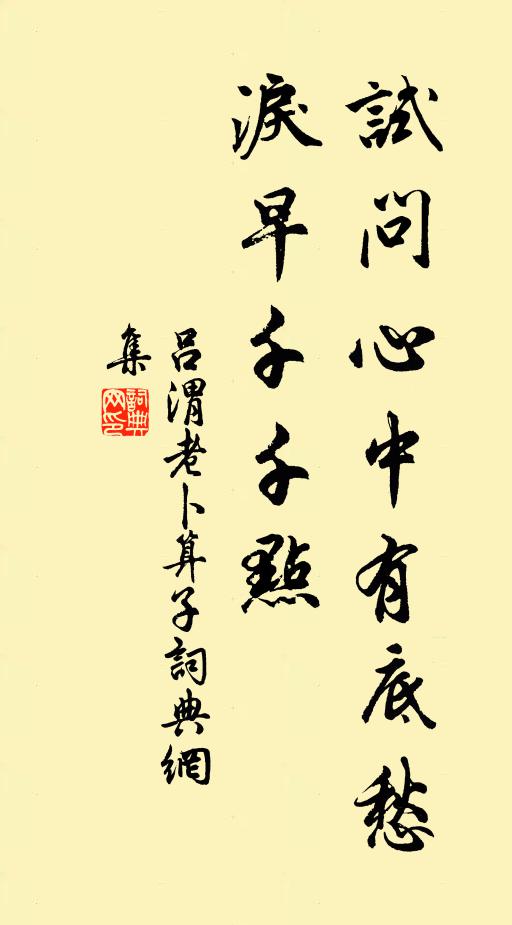 試問心中有底愁
淚早千千點
呂渭老卜算子詞典網
集
詞典网印